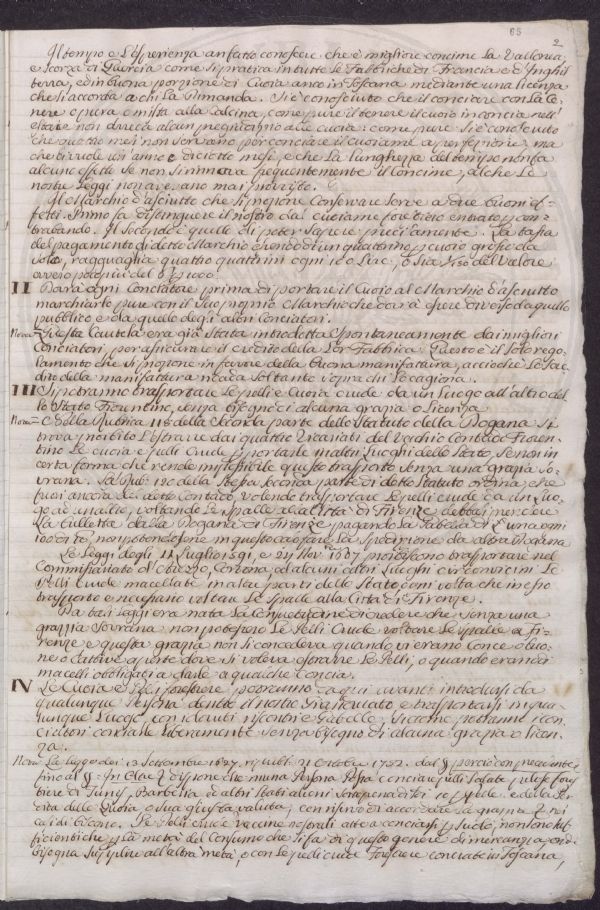 65
2
Il tempo e l'Esperienza an fatto conoscere che è migliore concime la Vallonea,
e scorza di Guercia come si pratica in tutte le Fabbriche di Francia e d'Inghil
terra, ed in buona porzione di Cuoia anco in Toscana mediante una licenza
che si accorda a chi la dimanda. Si è conosciuto che il conciare con la Ce,
nere o pura o mista alla Calcina, come pure il tenere il cuoio in concia nell'
estate non arreca alcun pregiudizio alle cuoia: come pure si è conosciuto
che quattro mesi non servano per conciare il cuoiame a perfezzione, ma
che ci vuole un anno e diciotto mesi, e che la lunghezza del tempo non fa
alcuno effetto se non si rinnova frequentemente il Concime, al che le
nostre Leggi non avevano mai provvisto.
Il Marchio d'asciutto che si propone Conservare serve a due buoni ef-
fetti. Primo fa distinguere il nostro dal cuoiame forestiero entrato p con-
trabando. Il secondo è quello di poter sapere precisamente. La tassa
del pagamento di detto Marchio essendo di un quattrino p cuoio grosso da
Solo, ragguaglia quattro quattrini ogni 100 Lire, o sia
ovvero poco più del
II Dovrà ogni Conciatore prima di portare il Cuoio al Marchio d'asciutto
marchiarlo pure con il suo proprio Marchio che dovrà essere diverso da quello
pubblico e da quelo degli altri Conciatori.
Nova Questa Cautela era già stata introdotta spontaneamente dai migliori
Conciatori, per assicurare il credito della lor Fabbrica. Questo è il solo rego-
lamento che si propone in favore della buona manifattura, acciochè lo scre
dito della manifattura ricada soltanto sopra chi lo cagiona.
III Si potranno trasportare le pelli e Cuoia crude da un Luogo all'altro del
lo Stato Fiorentino senza bisogno di alcuna grazia o licenza.
Nova Nella Rubrica 118 della seconda parte dello Statuto della Dogana si
trova proibito l'estrarre dai quattro Vicariati del Vecchio Contado Fioren-
tino le cuoia e pelli crude p portarle in altri Luoghi dello Stato, se non in
certa forma che rende impossibile questo trasporto senza una grazia so-
vrana. La Rub: 120 della stessa seconda parte di detto Statuto ordina, che
fuori ancora di detto Contado, volendo trasportare le pelli crude da un Luo-
go ad un altro, voltando le spalle alla Città di Firenze debbasi prendere
la bulletta dalla Dogana di Firenze pagando la Gabella di L una ogni
100 di to, non potendosene in questo caso fare la spedizione da altra Dogana
Le Leggi degli 11 Luglio 1591, e 24 Nov: 1687 proibiscono trasportare nel
Commissariato di Arezzo, Cortona ed alcuni altri Luoghi circonvicini le
Pelli crude macellate in altre parti dello Stato ogni volta che in esso
trasporto è necessario voltare le spalle alla Città di Firenze.
Da tali Leggi era nata la consuetudine di credere che senza una
grazzia sovrana non potessero le Pelli Crude voltare le spalle a Fi-
renze e questa grazia non si concedeva quando vi erano Conce o buo-
ne o cattive aperte dove si voleva estrarre le pelli, o quando erano i
macelli obbligati a darle a qualche Concia.
IV Le Cuoia e Pelli forestiere potranno da qui avanti introdursi da
qualunque Persona dentro il nostro Granducato, e trasportarsi in qua-
lunque Luogo con i dovuti riscontri e Gabelle, siccome potranno i con
ciatori conciarle liberamente senza bisogno di alcuna grazia o licen-
za.
Nova La Legge dei 13 Settembre 1627 21 Ottobre 1722 dal
fino al dispone che niuna Persona possa conciare pelli salate, pelose fores
tiere di Tunis, Barberia ed altri Stati alieni
dita delle Cuoia o sua giusta valuta, con riserva di accordare la grazia nei
casi di bisogno. Le Pelli crude vaccine nostrali atte a conciarsi p suolo, non sono suf-
ficienti che p la metà del Consumo che si fa di questo genere di mercanzia, onde
bisogna supplire all'altra metà, o con le pelli crude Forestiere conciate in Toscana,